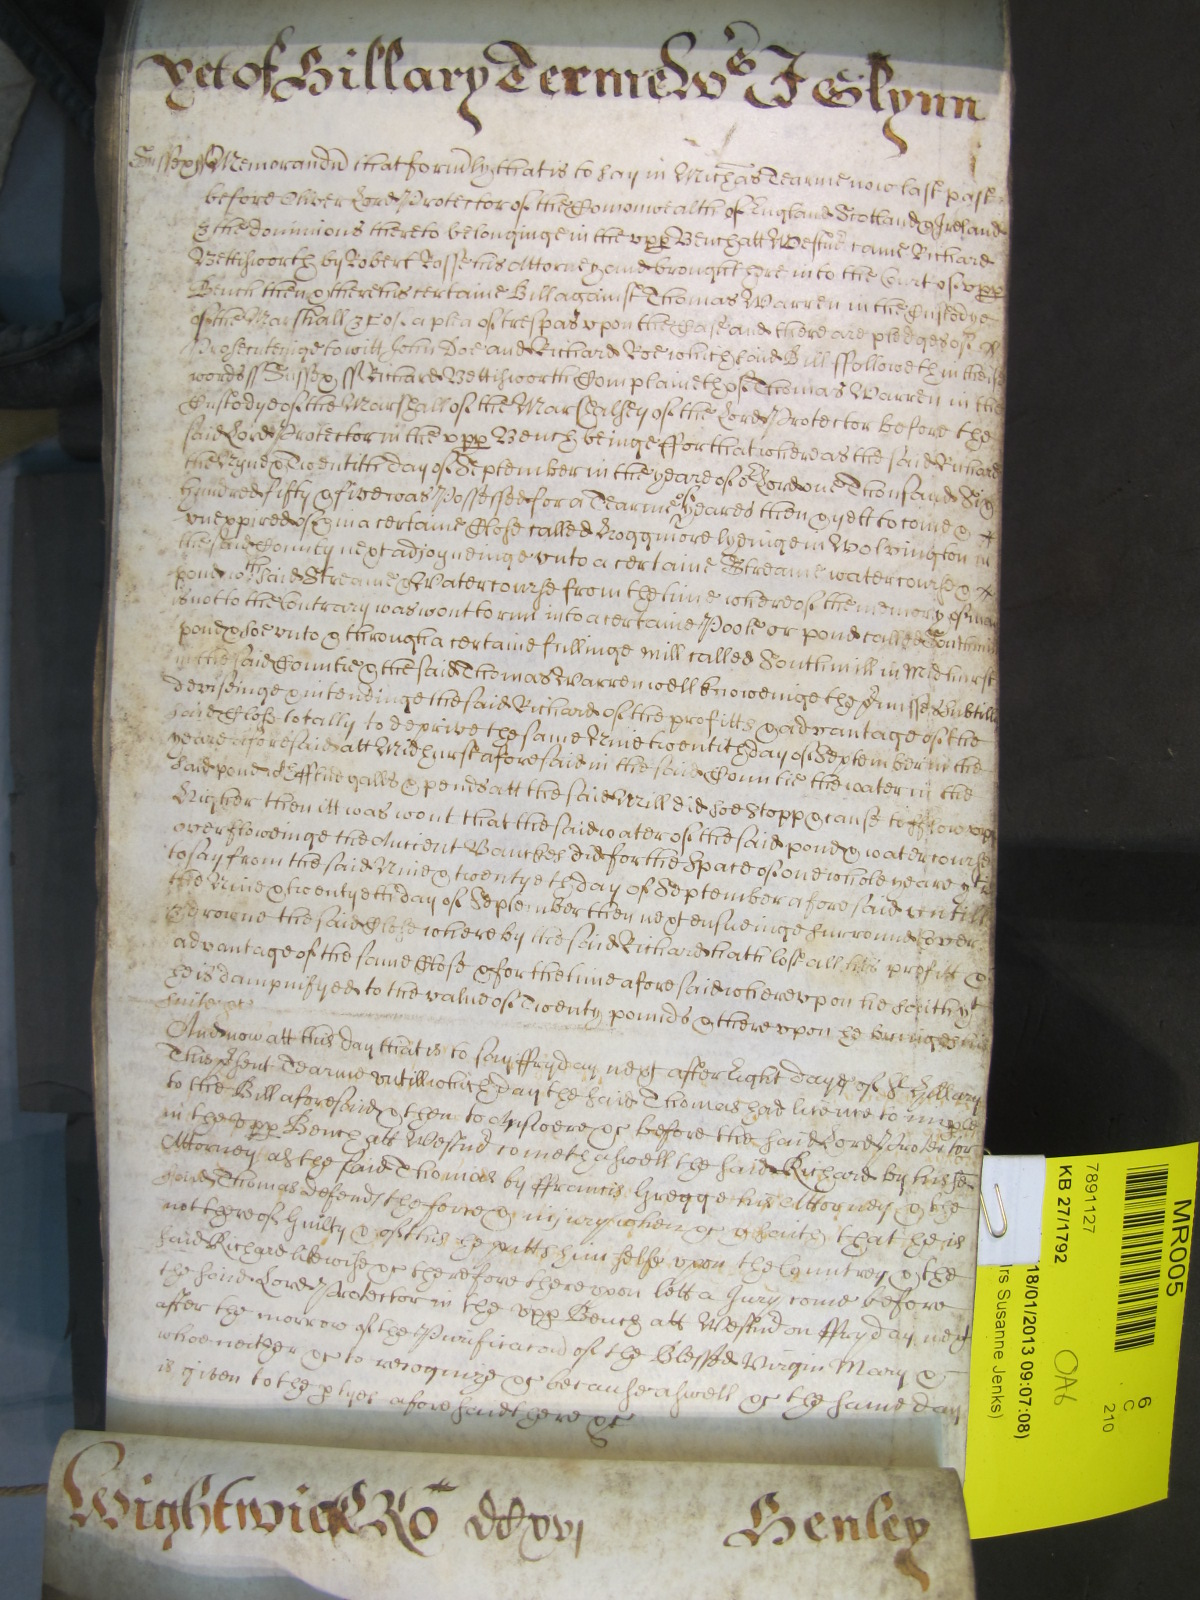 yet of Hillary Terme Ws J Glynn
Sussex ss Memorandd that formlly that is to say in Michas Tearme now last past
before Oliver Lord Protector of the Comonwealth of England Scotland & Ireland
& the dominions thereto belonginge in the upp Bench att Westmr came Richard
Bettisworth by Robert Rosse his Attorney and brought here into the Court of upp
Bench then & there his certaine Bill against Thomas Warren in the Custodye
of the Marshall &c of a plea of trespas upon the Case and there are pledges of
Prosecuteinge to witt John Doe and Richard Roe which said Bill ffolloweth in these
words ss Sussex ss Richard Bettisworth Complaineth of Thomas Warren in the
Custodye of the Marshall of the Marshalsey of the Lord Protector before the
said Lord Protector in the upp Bench beinge ffor that whereas the said Richard
the Nyne & Twentith day of September in the yeare of or Lord one Thousand Six
hundred fifty & five was Possessed for a Tearme of yeares then & yett to come &
unexpired of & in a certaine Close called Froggmore lyeinge in Wolvington in
the said County next adjoyneinge unto a certaine Streame watercourse &
pond wch said Streame & Watercourse from the time whereof the memory of man
is not to the Contrary was wont to run into a certaine Poole or pond called Southmill
pond & soe unto & through a certaine fullinge mill called Southmill in Midhurst
in the said Countie & the said Thomas Warren well knoweinge the pmisses Subtilly
deviseinge & intendinge the said Richard of the profitts & advantage of the
said Close totally to deprive the same Nine twentith day of September in the
yeare aforesaid att Midhurst aforesaid in the said Countie the water in the
said pond & Effluegalls & pends att the said Mill did soe stopp & cause to fflow upp
Higher then itt was wont that the said water of the said pond & watercourse
overfloweinge the Ancient Banckes did for the space of one whole yeare yt is
to say from the said Nine & twentyeth day of September aforesaid untill
the Nine & twentyeth day of September then next ensueinge surround cover
& drowne the said Close whereby the said Richard hath lost all his profitt &
advantage of the same Close & for the time aforesaid whereupon he saith yt
he is dampnifyed to the value of Twenty pounds & thereupon he bringes his
suite &c
And now att this day that is to say ffryday next after Eight dayes of St Hillary
This psent Tearme untill which day the said Thomas had licence to imple
to the Bill aforesaid & then to Answere &c before the said Lord Protector
in the upp Bench att Westmr cometh aswell the said Richard by his sd
Attorney as the said Thomas by ffrancis Gregge his Attorney & the
said Thomas defends the force & injury when &c & saith that he is
not thereof Guilty & of this he putts himselfe upon the Countrey & the
said Richard likewise &c therefore thereupon lett a Jury come before
the said Lord Protector in the upp Bench att Westmr on ffryday next
after the morrow of the Purificacon of the Blessed Virgin Mary &
whoe neither &c to recognize &c because aswell &c the same day
is given to the ptyes aforesaid there &c
Wightwick Ro ddxvi Henley
MR005
6
C
210
7891127
KB 27/1792
OA6
18/01/2013 09:07:08)
rs Susanne Jenks)